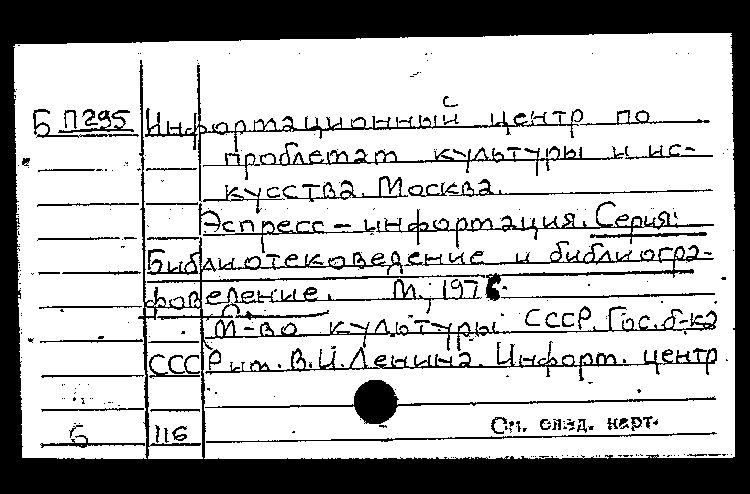 Б П295 Информационный центр по
проблемам культуры и ис-
кусства. Москва.
Эспресс – информация. Серия:
Библиотековедение и библиогра-
фоведение. М., 1976.
М-во культуры СССР. Гос. б-ка
СССР им. В.И.Ленина. Информ. центр
6 116 См. след. карт.